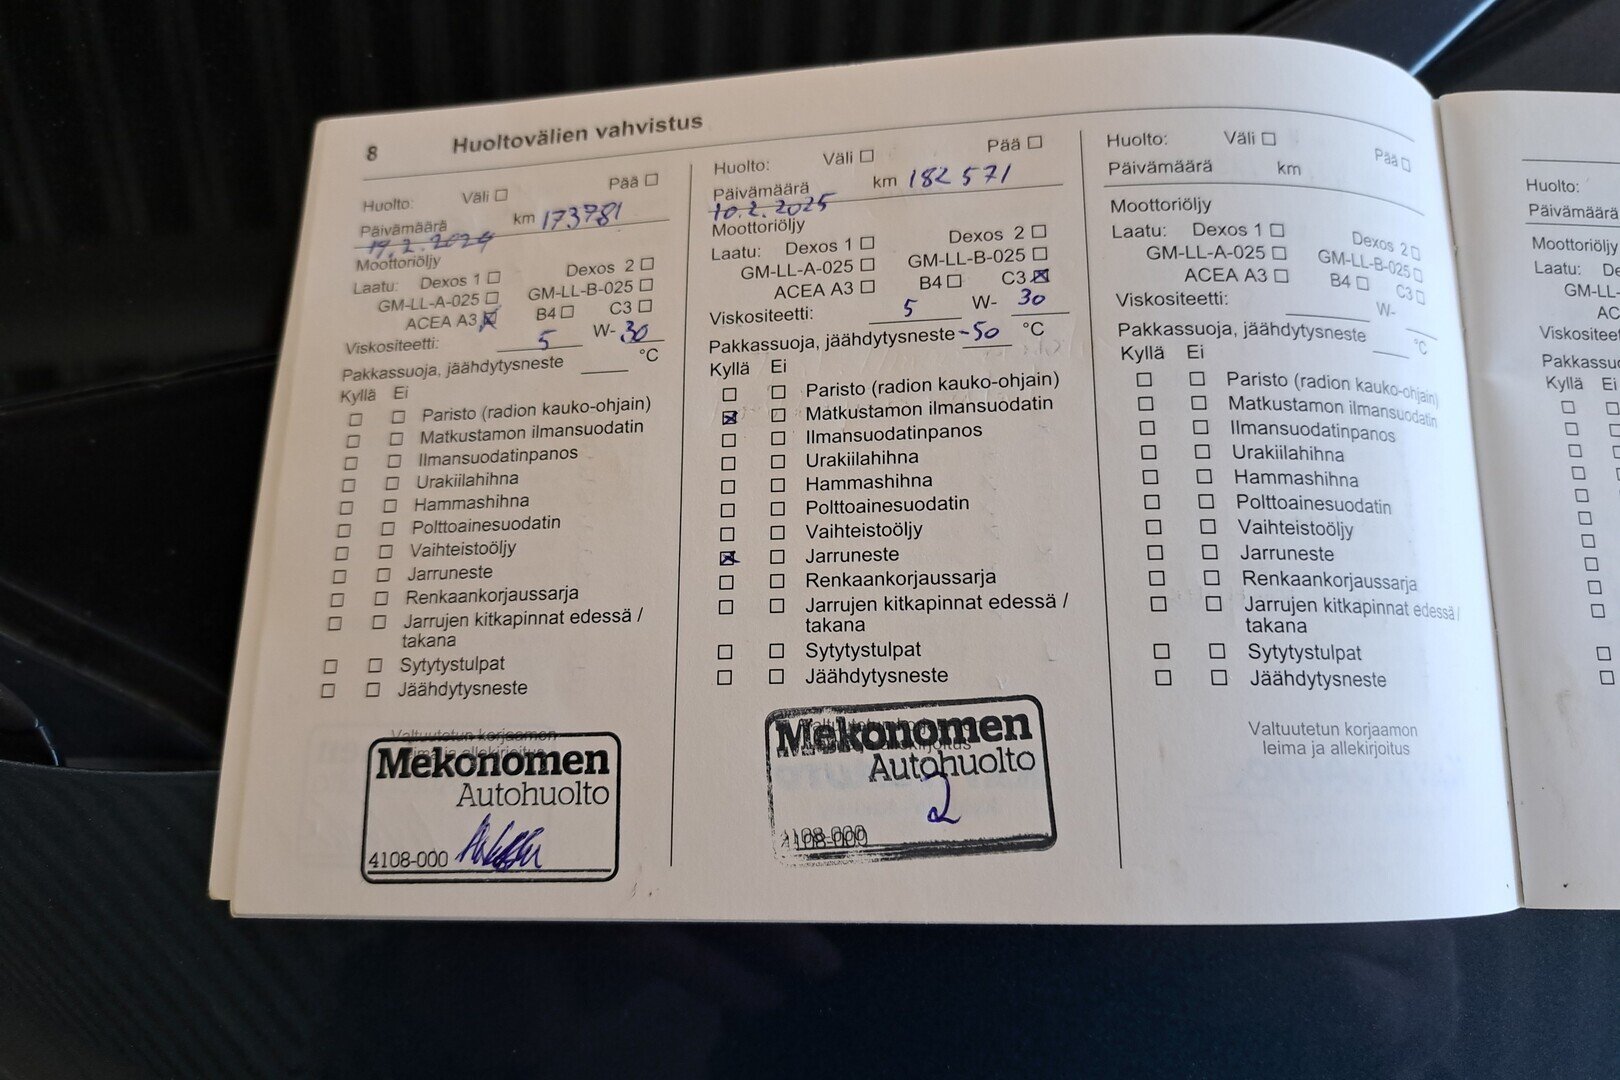 8 Huoltovälien vahvistus
Huolto: Väli ☐ Pää ☐
Päivämäärä km 173781
19.2.2024
Moottoriöljy
Laatu: Dexos 1 ☐ Dexos 2 ☐
GM-LL-A-025 ☐ GM-LL-B-025 ☐
ACEA A3 ☒ B4 ☐ C3 ☐
Viskositeetti: 5 W- 30
Pakkassuoja, jäähdytysneste ____ °C
Kyllä Ei
☐ ☐ Paristo (radion kauko-ohjain)
☐ ☐ Matkustamon ilmansuodatin
☐ ☐ Ilmansuodatinpanos
☐ ☐ Urakiilahihna
☐ ☐ Hammashihna
☐ ☐ Polttoainesuodatin
☐ ☐ Vaihteistoöljy
☐ ☐ Jarruneste
☐ ☐ Renkaankorjaussarja
☐ ☐ Jarrujen kitkapinnat edessä /
takana
☐ ☐ Sytytystulpat
☐ ☐ Jäähdytysneste
Valtuutetun korjaamon
leima ja allekirjoitus
Mekonomen
Autohuolto
4108-000
Huolto: Väli ☐ Pää ☐
Päivämäärä km 182 571
10.2.2025
Moottoriöljy
Laatu: Dexos 1 ☐ Dexos 2 ☐
GM-LL-A-025 ☐ GM-LL-B-025 ☐
ACEA A3 ☐ B4 ☐ C3 ☒
Viskositeetti: 5 W- 30
Pakkassuoja, jäähdytysneste -50 °C
Kyllä Ei
☐ ☐ Paristo (radion kauko-ohjain)
☒ ☐ Matkustamon ilmansuodatin
☐ ☐ Ilmansuodatinpanos
☐ ☐ Urakiilahihna
☐ ☐ Hammashihna
☐ ☐ Polttoainesuodatin
☐ ☐ Vaihteistoöljy
☒ ☐ Jarruneste
☐ ☐ Renkaankorjaussarja
☐ ☐ Jarrujen kitkapinnat edessä /
takana
☐ ☐ Sytytystulpat
☐ ☐ Jäähdytysneste
Mekonomen
Autohuolto
4108-000
Huolto: Väli ☐ Pää ☐
Päivämäärä km
Moottoriöljy
Laatu: Dexos 1 ☐ Dexos 2 ☐
GM-LL-A-025 ☐ GM-LL-B-025 ☐
ACEA A3 ☐ B4 ☐ C3 ☐
Viskositeetti: ____ W- ____
Pakkassuoja, jäähdytysneste ____ °C
Kyllä Ei
☐ ☐ Paristo (radion kauko-ohjain)
☐ ☐ Matkustamon ilmansuodatin
☐ ☐ Ilmansuodatinpanos
☐ ☐ Urakiilahihna
☐ ☐ Hammashihna
☐ ☐ Polttoainesuodatin
☐ ☐ Vaihteistoöljy
☐ ☐ Jarruneste
☐ ☐ Renkaankorjaussarja
☐ ☐ Jarrujen kitkapinnat edessä /
takana
☐ ☐ Sytytystulpat
☐ ☐ Jäähdytysneste
Valtuutetun korjaamon
leima ja allekirjoitus
Huolto:
Päivämäärä
Moottoriöljy
Laatu:
Viskositeet
Pakkassu
Kyllä Ei